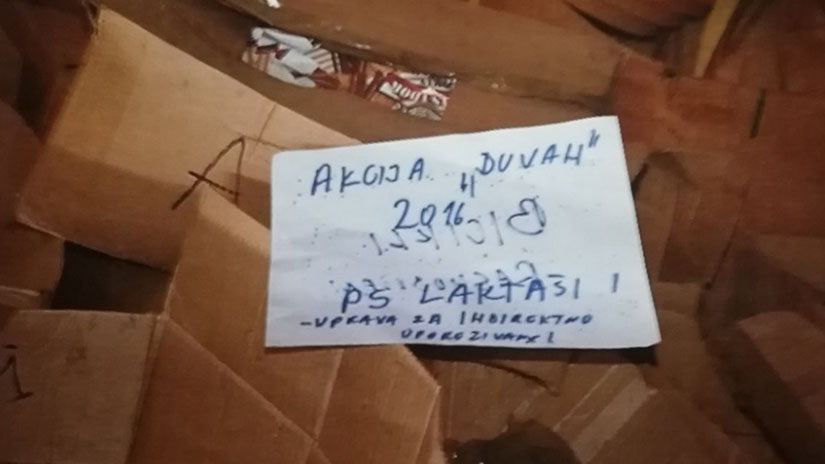 AKCIJA „DUVAN"
2016
PS LAKTAŠI
-UPRAVA ZA INDIREKTNO
OPOREZIVANJE
A